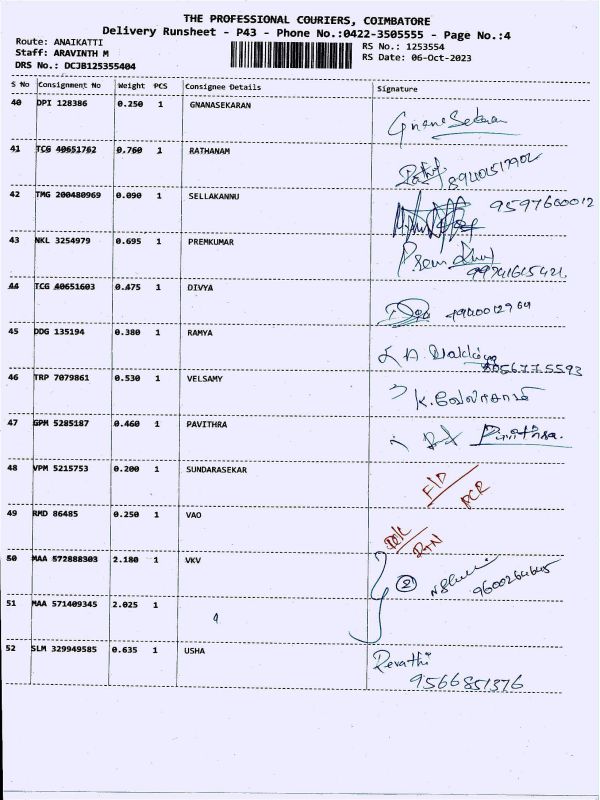 THE PROFESSIONAL COURIERS, COIMBATORE
Delivery Runsheet - P43 - Phone No.:0422-3505555 - Page No.:4
Route: ANAIKATTI
Staff: ARAVINTH M
DRS No.: DCJB125355404
RS No.: 1253554
RS Date: 06-Oct-2023
S No Consignment No Weight PCS Consignee Details Signature
40 DPI 128386 0.250 1 GNANASEKARAN Gnana Sekaran
41 TCG 40651762 0.760 1 RATHANAM
42 TMG 200480969 0.090 1 SELLAKANNU 9597600012
43 NKL 3254979 0.695 1 PREMKUMAR Prem Kumar
44 TCG 40651603 0.475 1 DIVYA
45 DDG 135194 0.380 1 RAMYA
8056775593
46 TRP 7079861 0.530 1 VELSAMY
47 GPM 5285187 0.460 1 PAVITHRA
48 VPM 5215753 0.200 1 SUNDARASEKAR F/D PCR
49 RMD 86485 0.250 1 VAO RTN
50 MAA 572888303 2.180 1 VKV
51 MAA 571409345 2.025 1
52 SLM 329949585 0.635 1 USHA Revathi
9566851376